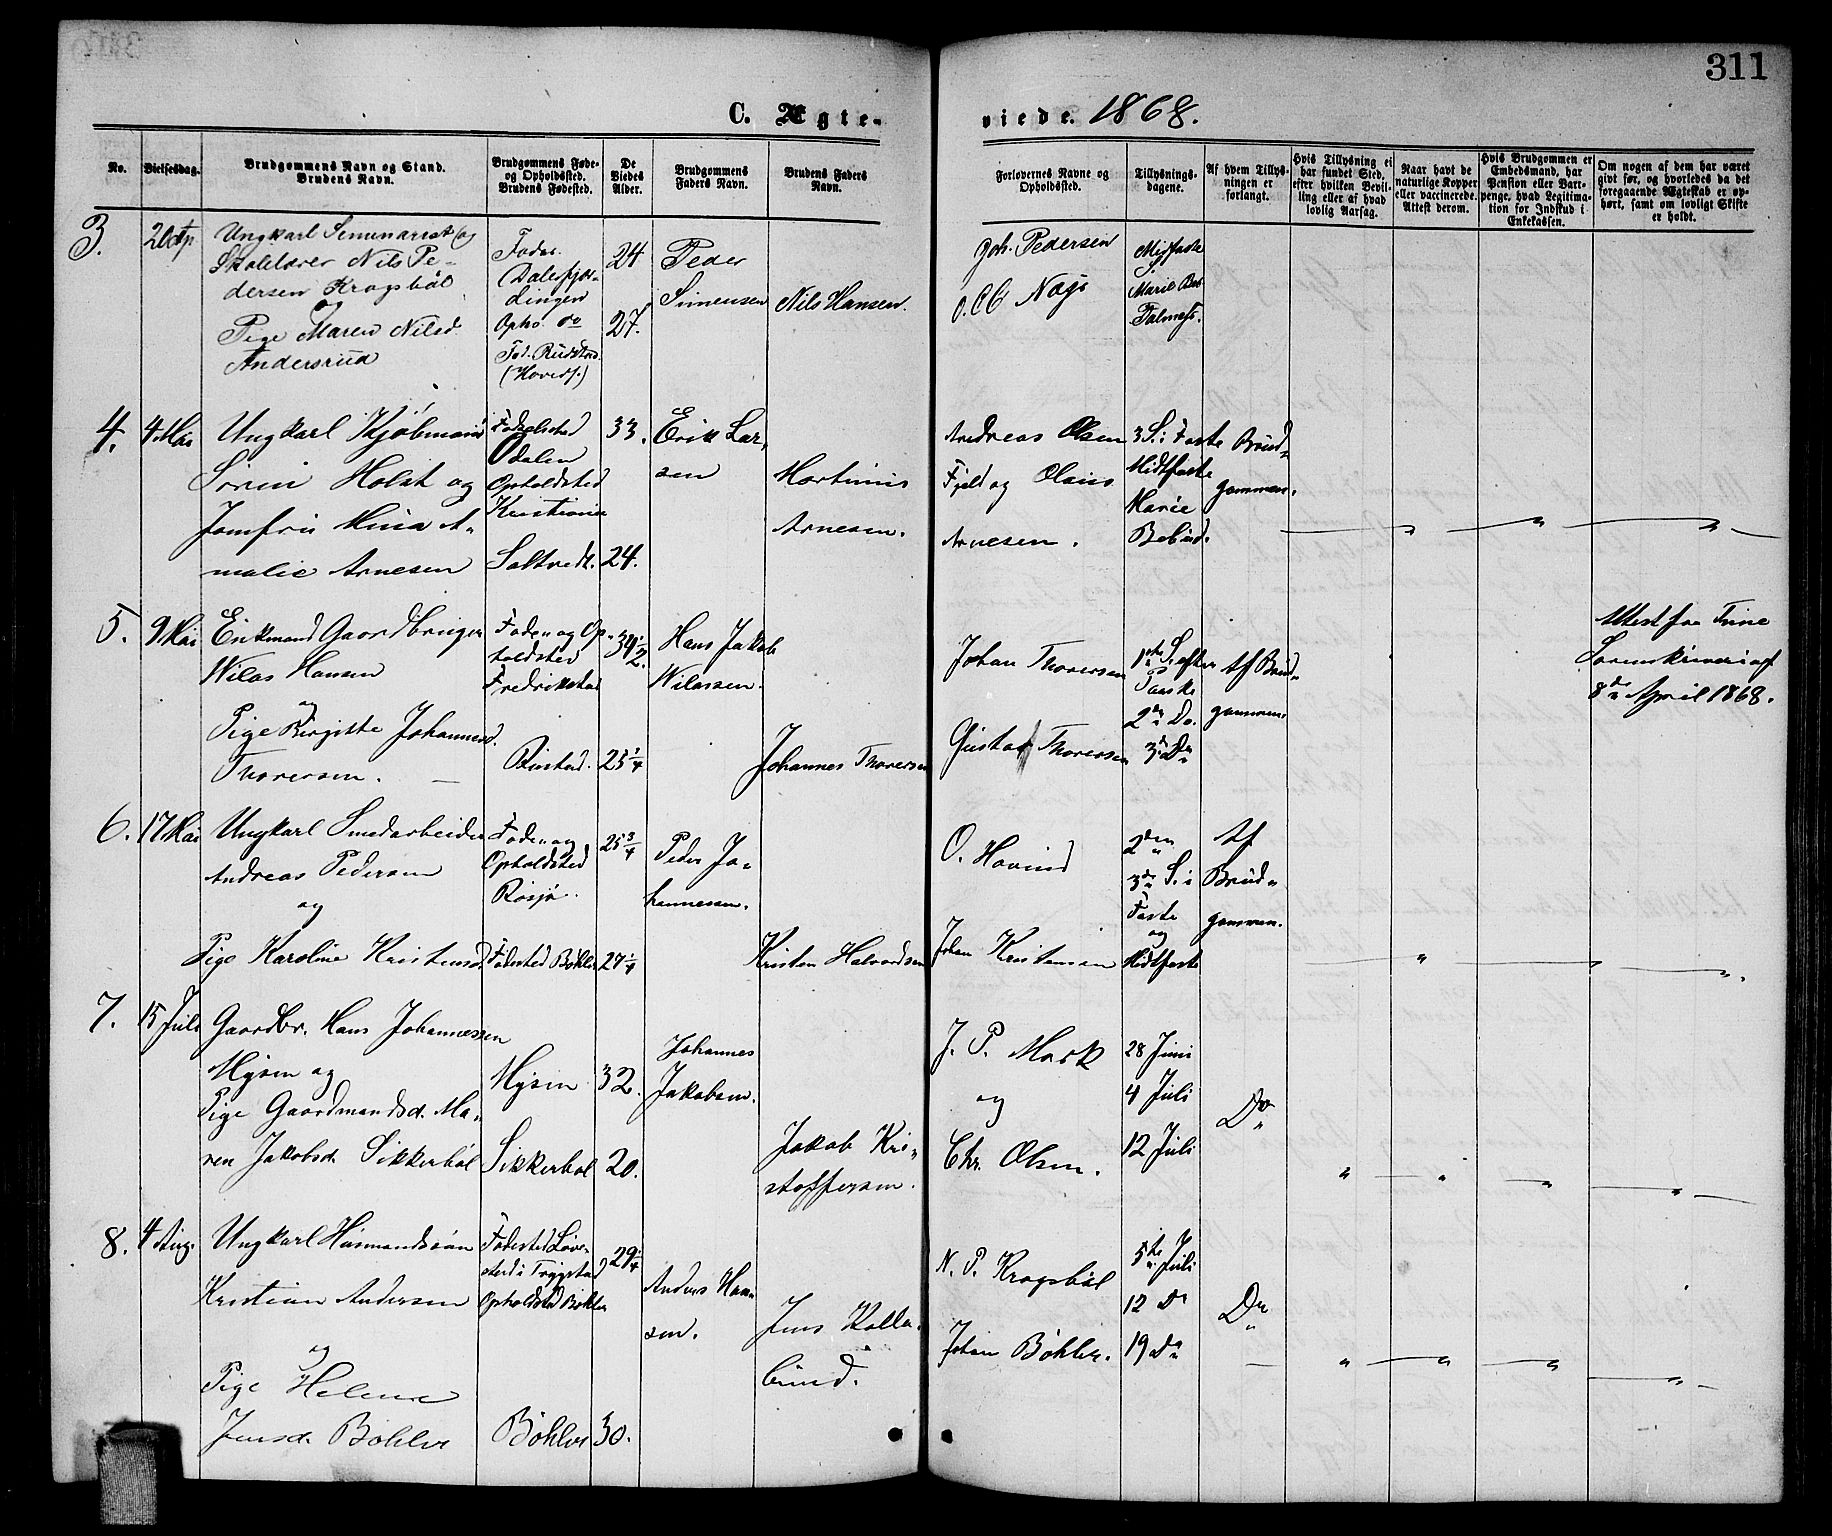 311
C. Ægte-
viede. 1868.
No.
Vielsesdag.
Brudgommens Navn og Stand.
Brudens Navn.
Brudgommens Føde-
og Opholdsted.
Brudens Fødested.
De
Viedes
Alder.
Brudgommens
Faders Navn.
Brudens Faders
Navn.
Forlovernes Navne og
Opholdsted.
Tillysnings-
dagene.
Af hvem Tillys-
ningen er
forlangt.
Hvis Tillysning ei
har fundet Sted,
efter hvilken Bevil-
ling eller af hvad
lovlig Aarsag.
Naar havt de
naturlige Kopper
eller vaccinerede.
Attest derom.
Hvis Brudgommen er
Embedsmand, har
Pension eller Vart-
penge, hvad Legitima-
tion for Indskud i
Enkekassen.
Om nogen af dem har været
givt før, og hvorledes da det
foregaaende Ægteskab er op-
hørt, samt om lovligt Skifte
er holdt.
3.
20 Ap
Ungkarl Seminarist og
Skolelærer Nils Pe-
dersen Kragsbøl
og
Pige Maren Nilsd.
Andersrud
Føder.
Dalesfjær-
dingen
Opho. do
Fød. Rudstad
(Hoveds.)
24
27.
Peder
Simensen
Nils Hansen.
Joh. Pedersen
O. Ch. Næss
Midfaste
S.
Marie Beb
Palmes.
4.
4 Mai
Ungkarl Kjøbmand
Sören Holst og
Jomfru Mina A-
malie Arnesen
Fødselsted
Odalen
Opholdsted
Kristiania
Saltvedt.
33.
24.
Erik Lar-
sen
Martinus
Arnesen.
Andreas Olsen
Fjeld og Olaus
Arnesen.
3 S. i Faste
Midtfaste
Marie
Bebud.
Brud-
gommen.
5.
9 Mai
Enkemand Gaardbruger
Nilas Hansen
og
Pige Birgitte Johannesd.
Thoresen.
Føde- og Op-
holdsted
Fredrikstad
Rustad.
34 1/2.
25 1/4
Hans Jakob
Nilassen.
Johannes Thoresen
Johan Thoresen
Gustav Thoresen
1ste S. efter
Paaske
2den Do.
3de Do
Af Brud-
gommen.
Attest fra Trine
Sorenskriveri af
8de April 1868.
6.
17 Mai
Ungkarl Smedarbeider
Andreas Pedersen
og
Pige Karoline Kristensd
Føde- og
Opholdsted
Rosjø.
Fødested Bøhler
25 3/4
27 1/4
Peder Jo-
hannesen.
Kristen Halvordsen
O. Hovind
Johan Kristensen
2den
3de S. i
Faste
og
Midtfaste
Af
Brud-
gommen.
7.
15 Juli
Gaardbr. Hans Johannessen
Mysen og
Pige Gaardmandsd. Ma-
ren Jakobsd. Sikkerbøl
Mysen
Sikkerbøl
32.
20.
Johannes
Jakobsen.
Jakob Kri-
stoffersen.
J. P. Mork
og
Chr. Olsen.
28 Juni
4 Juli
12 Juli
Do
8.
4 Aug.
Ungkarl Husmandssøn
Kristian Andersen
og
Pige Helene
Jensd. Bøhler
Fødested Løve-
sted i Trygstad
Opholdsted Bøhler
Bøhler
29 1/4
30.
Anders Han-
sen.
Jens Kolle-
rud.
N. P. Kragsbøl
Johan Bøhler.
5te Juli
12 Do
19 Do
Do